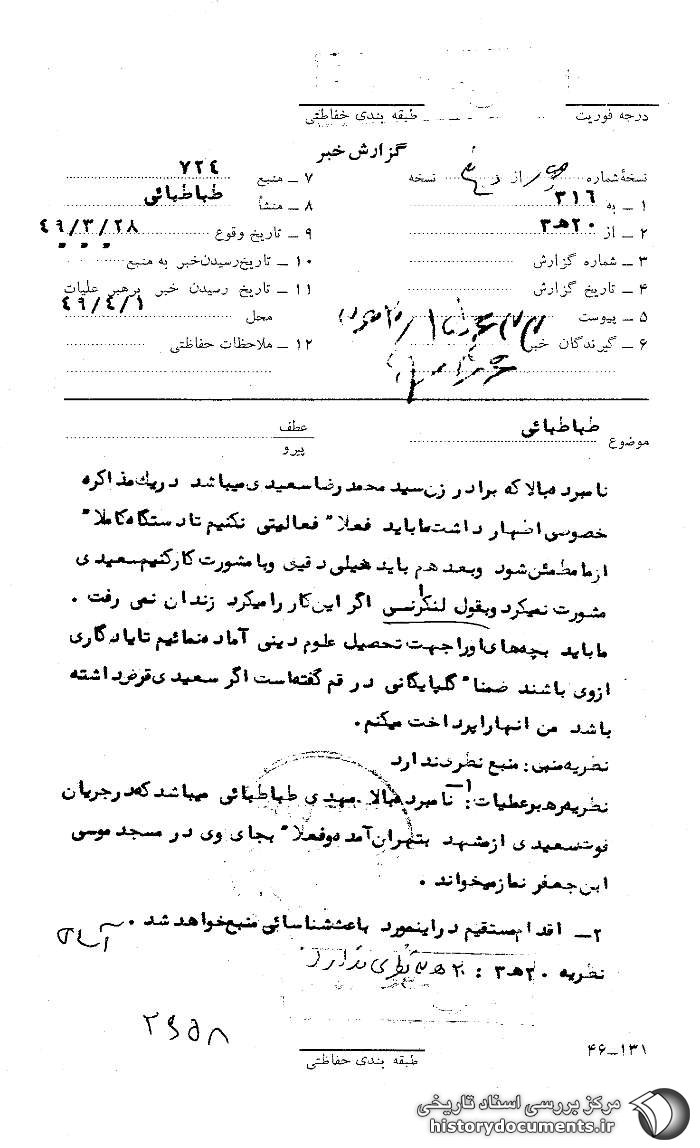 درجه فوریت
طبقه بندی حفاظتی
گزارش خبر
نسخهٔ شماره از نسخه
۱ ــ به ۳۱۶
۲ ــ از ۲۰هـ۳
۳ ــ شماره گزارش
۴ ــ تاریخ گزارش
۵ ــ پیوست
۶ ــ گیرندگان خبر
۷ ــ منبع ۷۲۴
۸ ــ منشأ طباطبائی
۹ ــ تاریخ وقوع ۴۹/۳/۲۸
۱۰ ــ تاریخ رسیدن خبر به منبع
۱۱ ــ تاریخ رسیدن خبر برهبر عملیات
محل ۴۹/۴/۱
۱۲ ــ ملاحظات حفاظتی
موضوع طباطبائی
عطف
پیرو
نامبرده بالا که برادر زن سید محمد رضا سعیدی میباشد در یک مذاکره
خصوصی اظهار داشت ما باید فعلا" فعالیتی نکنیم تا دستگاه کاملا"
از ما مطمئن شود و بعد هم باید خیلی دقیق و با مشورت کار کنیم سعیدی
مشورت نمیکرد و بقول لنکرانسی اگر این کار را میکرد زندان نمی رفت .
ما باید بچه های او را جهت تحصیل علوم دینی آماده نمائیم تا یادگاری
از وی باشند ضمنا" گلپایگانی در قم گفته است اگر سعیدی قرض داشته
باشد من انها را پرداخت میکنم .
نظریه منبع : منبع نظری ندارد
نظریه رهبر عملیات : ۱ـ نامبرده بالا مهدی طباطبائی میباشد که در جریان
فوت سعیدی از مشهد بتهران آمده و فعلا" بجای وی در مسجد موسی
ابن جعفر نماز میخواند .
۲ــ اقدام مستقیم در اینمورد باعث شناسائی منبع خواهد شد .
نظریه ۲۰هـ۳ : ۲۰هـ۳ نظری ندارد
۱۳۱ــ۴۶
طبقه بندی حفاظتی
مرکز بررسی اسناد تاریخی
historydocuments.ir